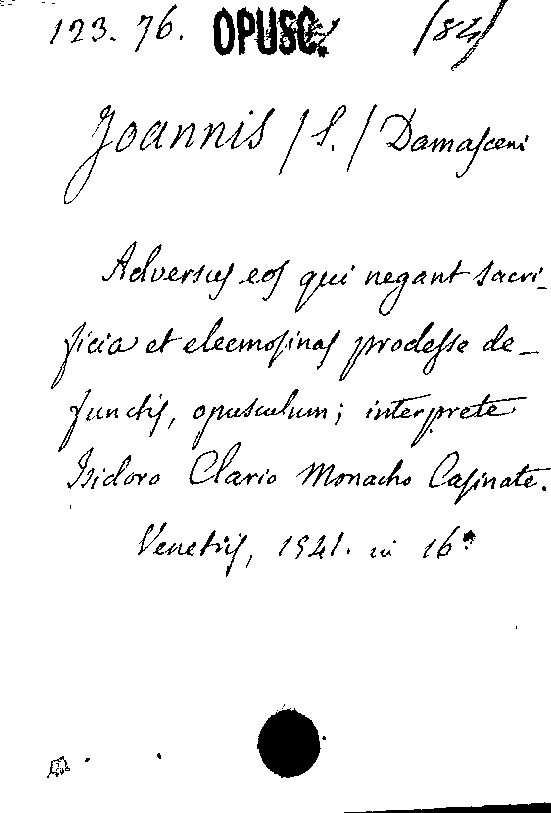 123. 76. OPUSC. (84)
Joannis / S. / Damasceni
Adversus eos qui negant sacri-
ficia et eleemosinas prodesse de-
functis, opusculum; interprete
Isidoro Clario Monacho Casinate.
Venetiis, 1541. in 16º